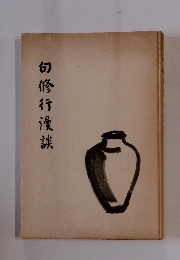 句修行漫談